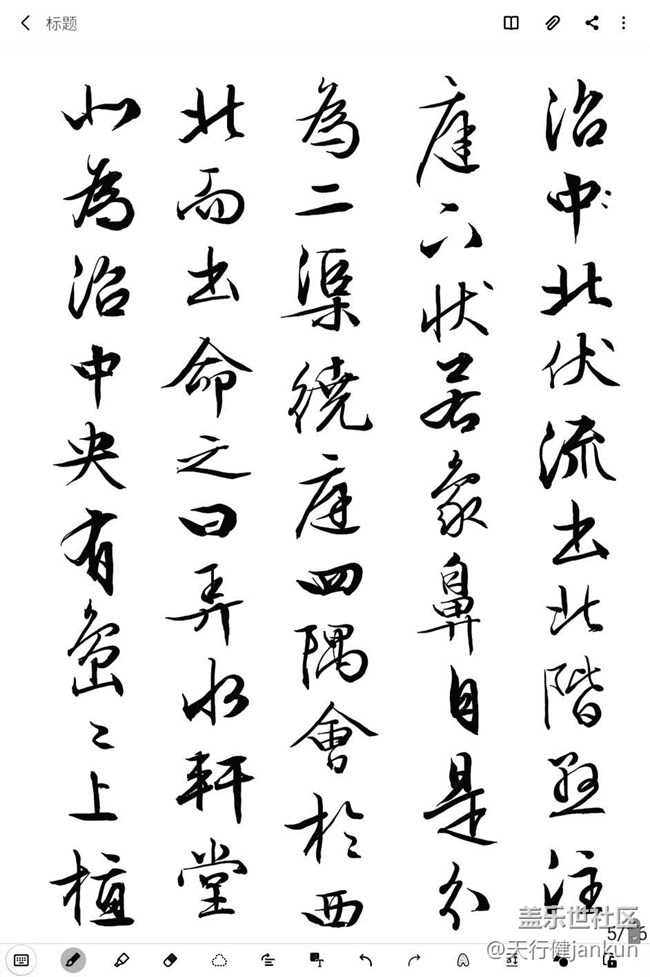 标题
沼中:北伏流出北階懸注
庭下状若象鼻自是分
為二渠繞庭四隅會於西
北而出命之曰弄水軒堂
北為沼中央有島〻上植
盖乐世社区
@天行健jankun